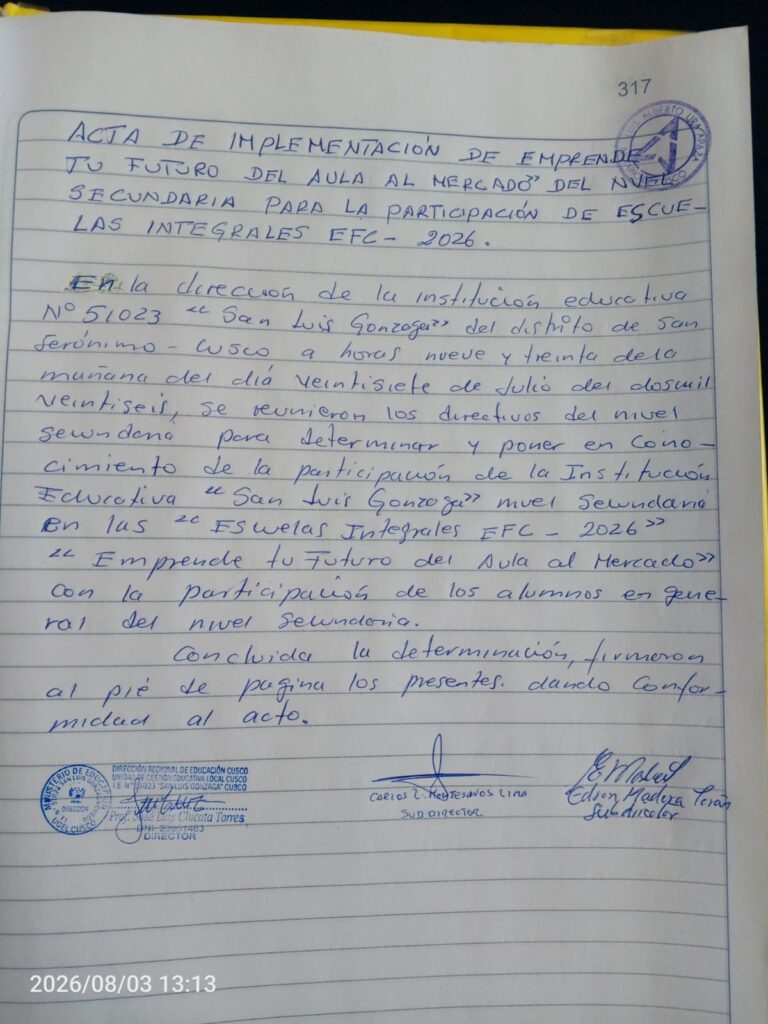 317
ACTA DE IMPLEMENTACIÓN DE EMPRENDE
TU FUTURO DEL AULA AL MERCADO" DEL NIVEL
SECUNDARIA PARA LA PARTICIPACIÓN DE ESCUE-
LAS INTEGRALES EFC - 2026.
En la dirección de la institución educativa
N° 51023 "San Luis Gonzaga" del distrito de San
Jerónimo - Cusco a horas nueve y treinta de la
mañana del día veintisiete de Julio del dosmil
veintiseis, se reunieron los directivos del nivel
secundaria para determinar y poner en Cono-
cimiento de la participación de la Institución
Educativa "San Luis Gonzaga" nivel Secundaria
en las "Escuelas Integrales EFC - 2026"
"Emprende tu Futuro del Aula al Mercado"
con la participación de los alumnos en gene-
ral del nivel Secundaria.
Concluida la determinación, firmaron
al pié de pagina los presentes. dando Confor-
midad al acto.
MINISTERIO DE EDUCACIÓN
DIRECCIÓN
UGEL CUSCO
DIRECCIÓN REGIONAL DE EDUCACIÓN CUSCO
UNIDAD DE GESTIÓN EDUCATIVA LOCAL CUSCO
I.E. N° 51023 "SAN LUIS GONZAGA" CUSCO
Prof. José Luis Chicata Torres
DIRECTOR
CARLOS L. MONTESINOS LIMA
SUB DIRECTOR.
Edison Madera Terán
Subdirector
2026/08/03 13:13